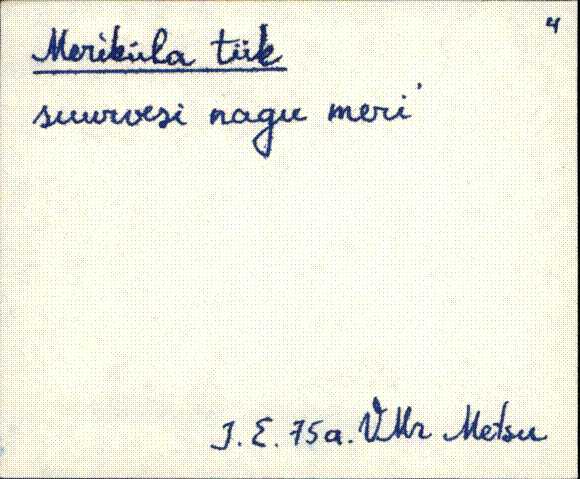 4
Meriküla tiik
suurvesi nagu meri
J. E. 75a. VMr Metsu